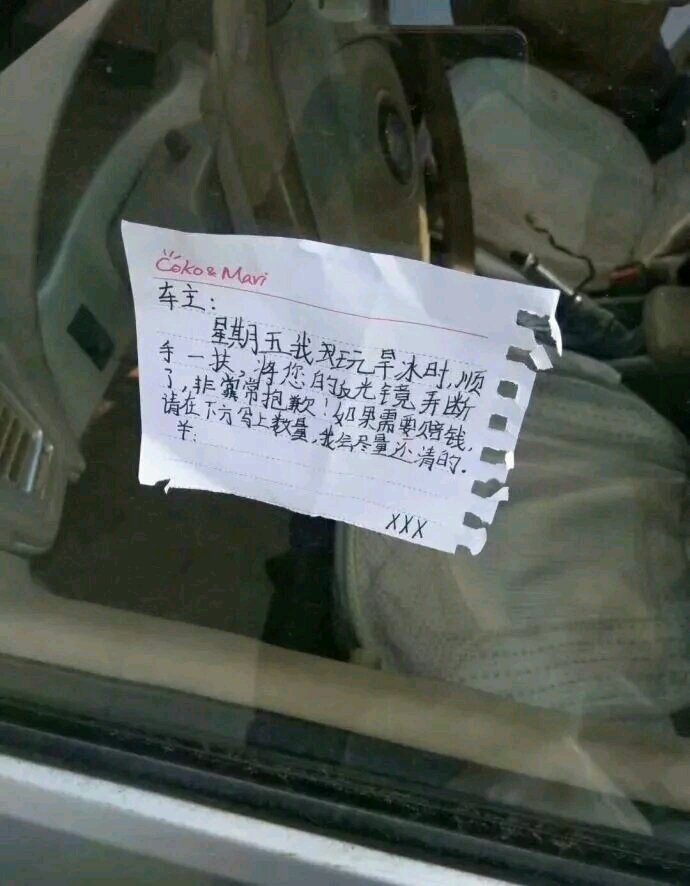 Coko & Mari
车主：
星期五我在玩旱冰时，顺
手一扶，将您的反光镜弄断
了，非常抱歉！如果需要赔钱，
请在下方写上数量，我会尽量还清的.
羊:
XXX